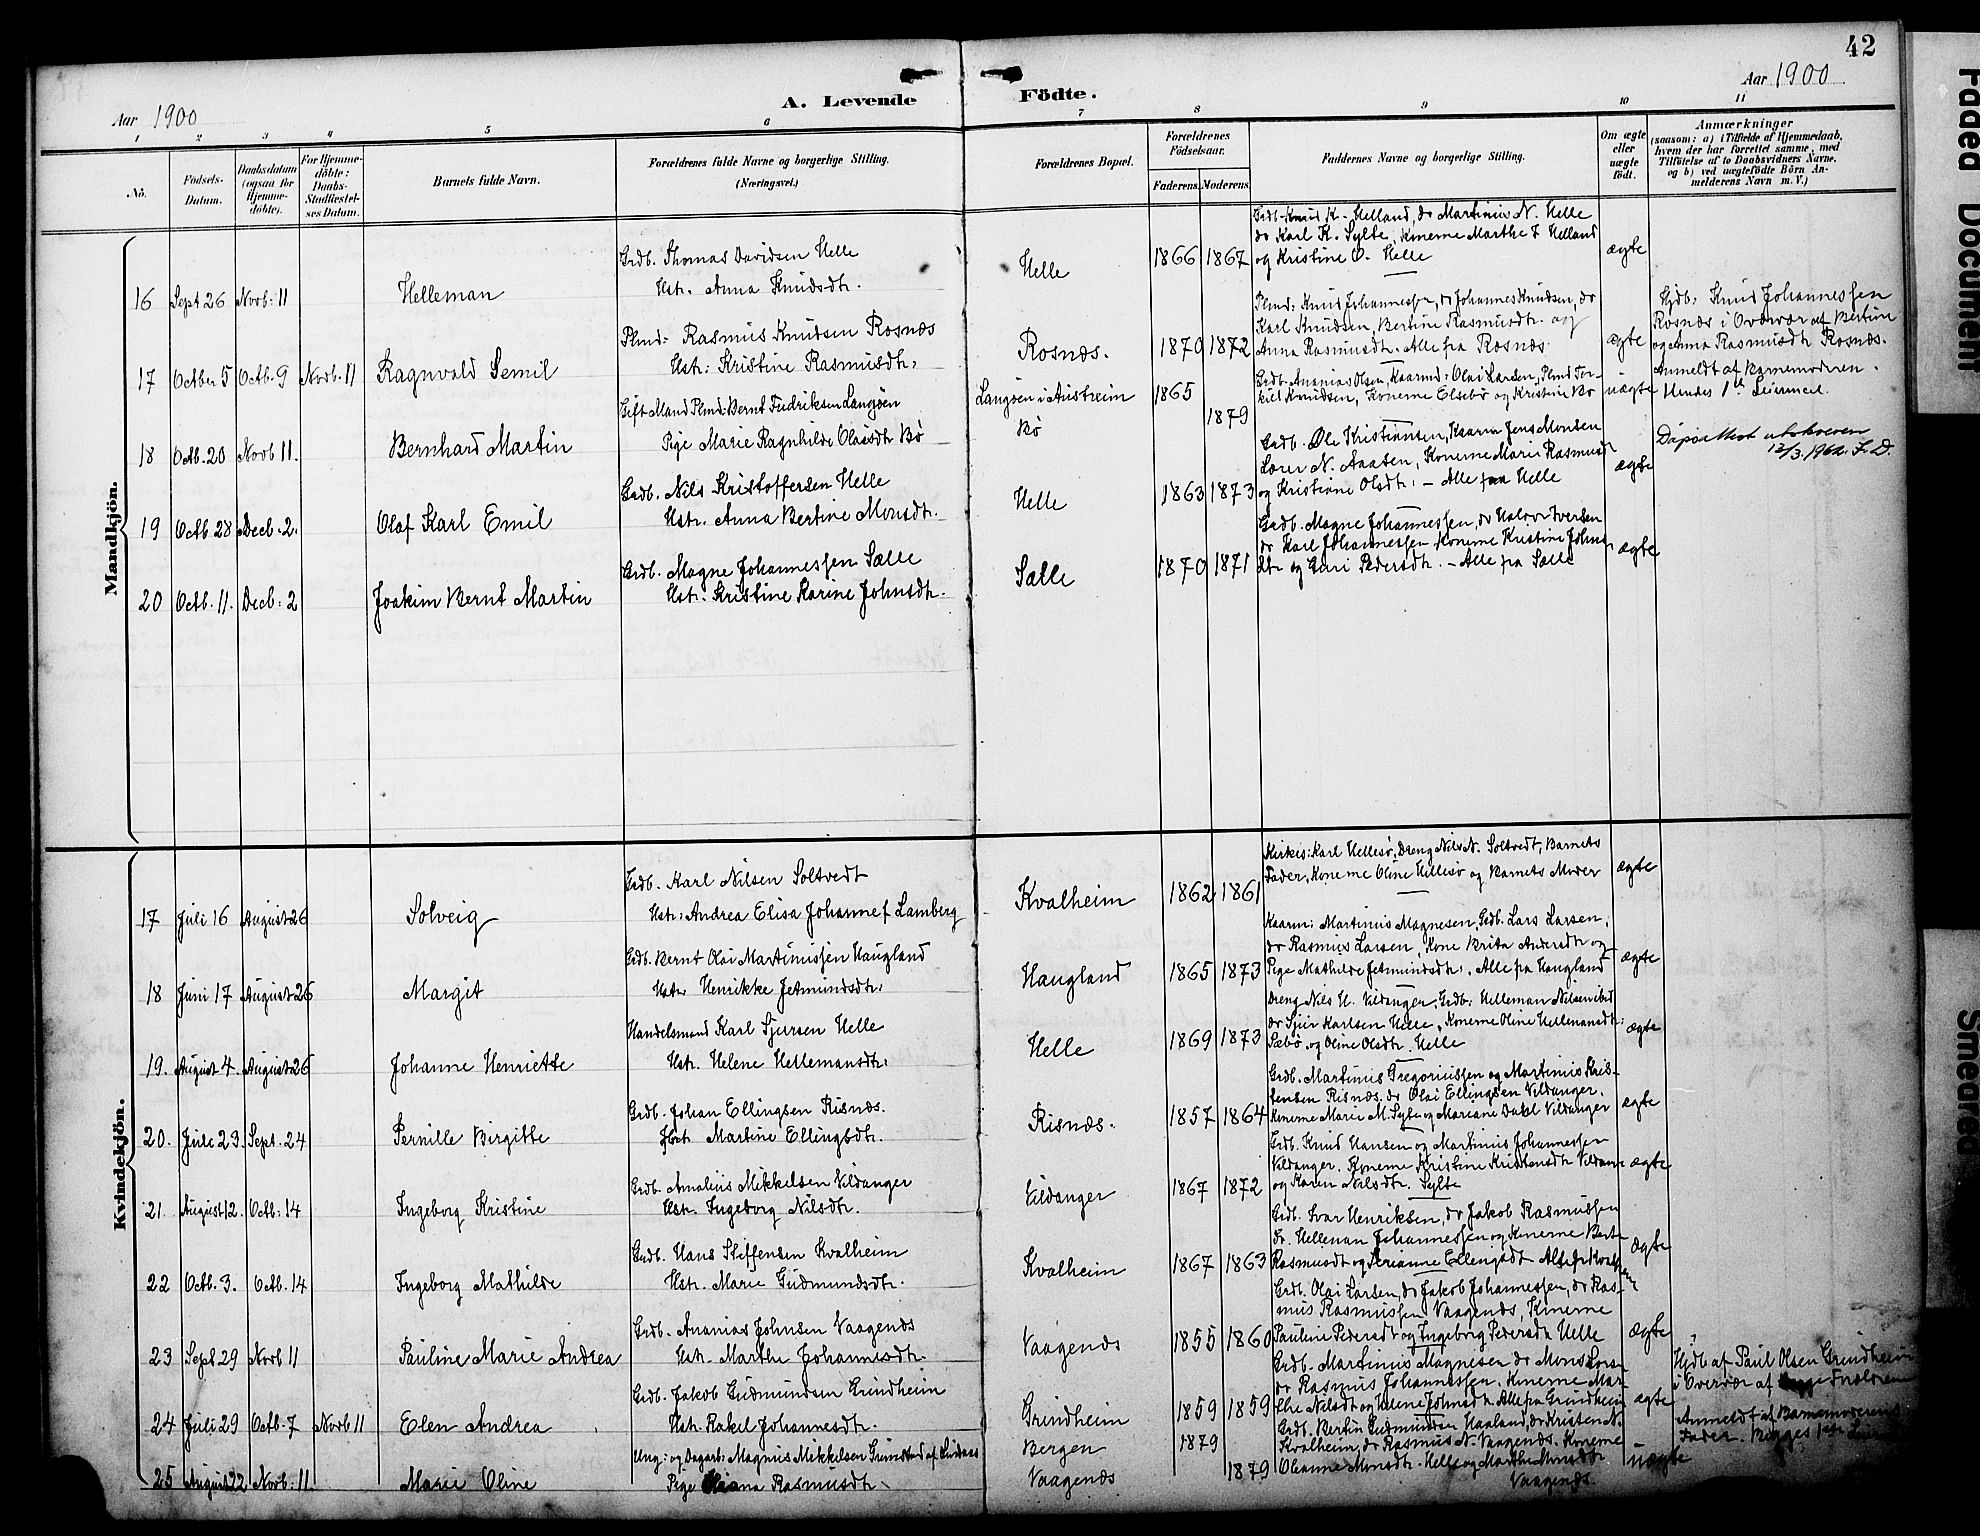 42
Aar 1900
A. Levende Födte.
Aar 1900
1 2 3 4 5 6 7 8 9 10 11
No.
Födsels-Datum.
Daabsdatum (ogsaa for Hjemmedöbte).
For Hjemmedöbte: Daabs-Stadfæstelses Datum.
Barnets fulde Navn.
Forældrenes fulde Navne og borgerlige Stilling.
(Næringsvei.)
Forældrenes Bopæl.
Forældrenes Födselsaar.
Faderens. Moderens.
Faddernes Navne og borgerlige Stilling.
Om ægte eller uægte födt.
Anmærkninger
(saasom: a) i Tilfælde af Hjemmedaab, hvem der har forrettet samme, med Tilföielse af to Daabsvidners Navne, og b) ved uægtefödte Börn Anmelderens Navn m. V.)
Mandkjön.
16 Sept. 26 Novb. 11 Helleman
Grdb. Thomas Davidsen Helle
Hstr. Anna Knudsdtr.
Helle 1866 1867
Grdb. Knud K. Helland, do Martinius N. Helle
do Karl K. Sylte, Konerne Marthe T Helland
og Kristine O. Helle
ægte
17 Octber 5 Octb. 9 Novb. 11 Ragnvald Semil
Plmd: Rasmus Knudsen Rosnæs
Hstr: Kristine Rasmusdtr.
Rosnæs. 1870 1872
Plmd: Knud Johannessen, do Johannes Knudsen, do
Karl Knudsen, Bertine Rasmusdtr. og
Anna Rasmusdtr. Alle fra Rosnæs.
ægte
Hjdb. Knud Johannessen
Rosnæs i Overvær af Bertine
og Anna Rasmusdtr Rosnæs.
18 Octb. 20 Novb 11. Bernhard Martin
Gift Mand Plmd: Bernt Fredriksen Langöen
Pige Marie Ragnhilde Olaisdtr Bö
Langöen i Austreim 1865
Bö 1879
Grdb. Ananias Olsen, Kaarmd: Olai Larsen, Plmd Tor-
kild Knudsen, Konerne Elsebö og Kristine Bö
uægte
Anmeldt af Barnemoderen.
Hendes 1ste Leiermaal.
19 Octb 28 Decb. 2. Olaf Karl Emil
Grdb. Nils Kristoffersen Helle
Hstr. Anna Bertine Monsdtr.
Helle 1863 1873
Grdb. Ole Kristiansen, Kaarm Jens Monsen
N. Aaasen, Konerne Marie Rasmusd
og Kristiane Olsdtr. – Alle fra Helle
ægte
Dåpsattest utskreven
12/3.1962. F.D.
20 Octb. 11. Decb. 2 Joakim Bernt Martin
Grdb. Magne Johannessen Sælle
Hstr. Kristine Karine Johnsdtr.
Sælle 1870 1871
Grdb. Magne Johannessen, do Halvor Iversen
do Karl Johannessen Konerne Kristine Johns-
dtr og Guri Pedersdtr. – Alle fra Sælle
ægte
Kvindekjön.
17 Juli 16 August 26 Solveig
Grdb. Karl Nilsen Soltvedt
Hstr: Andrea Elisa Johannes Lamberg
Kvalheim 1862 1861
Kirkes: Karl Hellesö, Dreng Nils N. Soltvedt, Barnets
Fader, Konerne Oline Hellesö og Barnets Moder
ægte
18 Juni 17 August 26 Margit
Grdb. Bernt Olai Martiniussen Haugland
Hstr. Henrikke Jetmundsdtr.
Haugland 1865 1873
Kaarm: Martinius Magnesen, Grdb. Lars Larsen,
do Rasmus Larsen, Kone Brita Andersdtr og
Pige Mathilde Jetmundsdtr. Alle fra Haugland
ægte
19. August 4. August 26 Johanne Henriette
Handelsmand Karl Sjursen Helle
Hstr. Helene Hellemansdtr.
Helle 1869 1873
Dreng Nils H. Vildanger, Grdb: Helleman Nilsen
do Sjur Karlsen Helle, Konerne Oline Hellemansdtr.
Sæbö og Oline Olsdtr. Helle
ægte
20. Juli 23. Sept. 24 Pernille Birgitte
Grdb. Johan Ellingsen Risnæs.
Hstr Martine Ellingsdtr.
Risnæs. 1857 1864
Grdb. Martinus Gregoriussen og Martinius Kris-
tensen Risnæs. do Olai Ellingsen Vildanger.
Konerne Marie M. Sylte og Mariane Dahl Vildanger
ægte
21. August 12. Octb. 14 Ingeborg Kristine
Grdb. Amalius Mikkelsen Vildanger
Hstr. Ingeborg Nilsdtr.
Vildanger 1867 1872
Grdb. Knud Hansen og Martinius Johannessen
Vildanger. Konerne Kristine Kristensdtr Vildan
og Karen Nilsdtr. Sylte
ægte
22 Octb. 3. Octb. 14 Ingeborg Mathilde
Grdb. Hans Steffensen Kvalheim
Hstr. Marie Gudmundsdtr.
Kvalheim 1867 1863
Grdb. Ivar Henriksen, do Jakob Rasmussen
do. Helleman Johannessen og Konerne Berte
Rasmusdt og Serianne Ellingsdt
ægte
23 Sept 29 Novb 11 Pauline Marie Andrea
Grdb. Ananias Johnsen Vaagenæs
Hstr. Marthe Johannesdtr.
Vaagenæs 1855 1860
Grdb. Olai Larsen, do Jakob Johannessen, do Ras-
mus Rasmussen Vaagenæs, Konerne
Pauline Pedersdt og Ingeborg Pedersdtr Helle
ægte
24 Juli 29 Octb. 7 Novb 11 Elen Andrea
Grdb. Jakob Gudmundsen Grindheim
Hstr. Rakel Johannesdtr.
Grindheim 1859 1859
Grdb. Martinius Magnesen do Mons Larsen
do Rasmus Johannessen. Konerne Mar-
the Nilsdt og Helene Johnsdtr Alle fra Grindheim
ægte
Hjdb af Paul Olsen Grindheim
i Overvær af Forældrene
25 August 22 Novb. 11. Marie Oline
Ung: og Dagarb: Magnus Mikkelsen
Pige Rasmusdtr.
Bergen 1879
Vaagenæs 1879
Grdb. Bertin Gudmundsen Haaland, do Kristen N.
Kvalheim, do Rasmus N. Vaagenæs. Konerne
Oleanne Monsdtr. Helle og Marthe Monsdtr.
Vaagenæs.
uægte
Anmeldt af Barnemoderens
Fader. Begges 1ste
Faded Document
Smeared